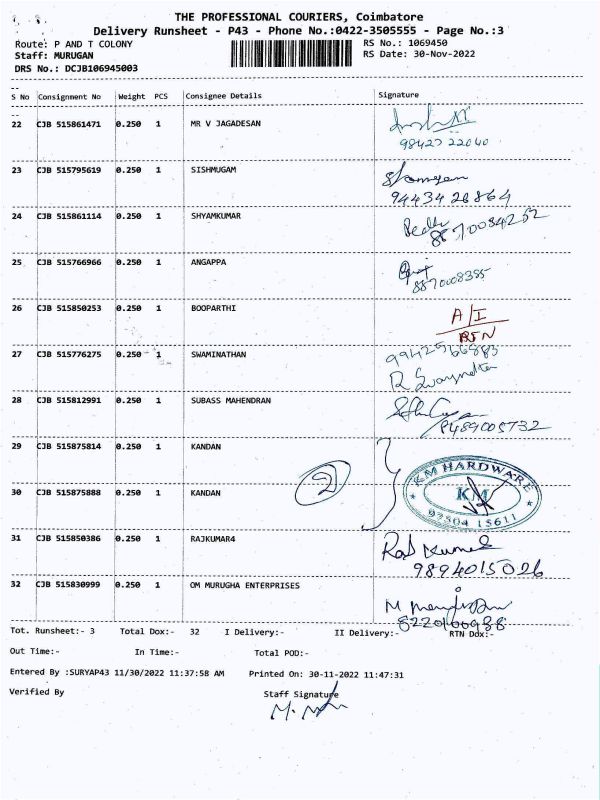 THE PROFESSIONAL COURIERS, Coimbatore
Delivery Runsheet - P43 - Phone No.:0422-3505555 - Page No.:3
Route: P AND T COLONY RS No.: 1069450
Staff: MURUGAN RS Date: 30-Nov-2022
DRS No.: DCJB106945003
S No Consignment No Weight PCS Consignee Details Signature
22 CJB 515861471 0.250 1 MR V JAGADESAN
98427 22040
23 CJB 515795619 0.250 1 SISHMUGAM
9443428864
24 CJB 515861114 0.250 1 SHYAMKUMAR
8870084252
25 CJB 515766966 0.250 1 ANGAPPA
8870008385
26 CJB 515850253 0.250 1 BOOPARTHI A/I
RTN
27 CJB 515776275 0.250 1 SWAMINATHAN
28 CJB 515812991 0.250 1 SUBASS MAHENDRAN
9489005732
29 CJB 515875814 0.250 1 KANDAN
2
KM HARDWARE
KM
92504 15611
30 CJB 515875888 0.250 1 KANDAN
31 CJB 515850386 0.250 1 RAJKUMAR4 Raj Kumar
9894015026
32 CJB 515830999 0.250 1 OM MURUGHA ENTERPRISES
8220100938
Tot. Runsheet:- 3 Total Dox:- 32 I Delivery:- II Delivery:- RTN Dox:-
Out Time:- In Time:- Total POD:-
Entered By :SURYAP43 11/30/2022 11:37:58 AM Printed On: 30-11-2022 11:47:31
Verified By Staff Signature